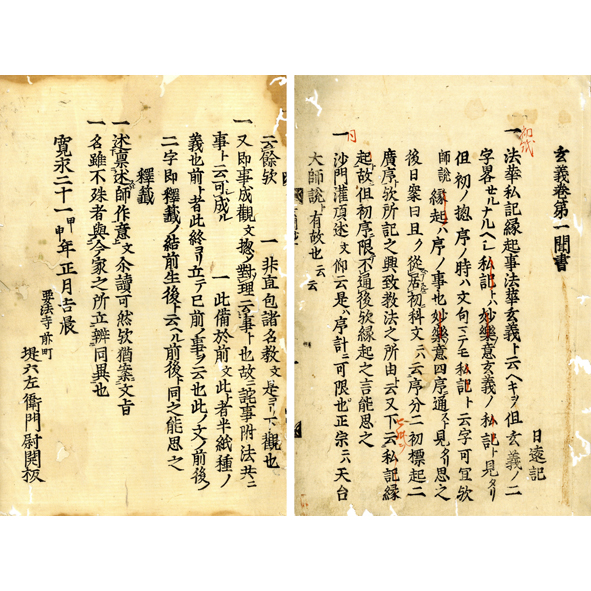 玄義卷第一聞書
日遠記
一 法華私記縁起事法華玄義ト云ヘキヲ但玄義ノ二
字畧セルナルヘシ私記トハ妙樂意玄義ノ私記ト見タリ
但初ノ捴序ノ時ハ文句ニテモ私記ト云字可冝欤
師說 縁起ハ序ノ事也妙樂意四序通ト見タリ思之
後日案曰且ク從居初科文云云序分二初標起二
廣序欤所記之興致教法之所由云又下云私記縁
起故但初序限不通後欤縁起之言能思之
一 沙門灌頂述文仰云是ハ序計ニ可限也正宗ニハ天台
大師說ト有故也云云
云餘欤 一 非直包諸名教文是ヨリ下ハ觀也
一 又卽事成觀文捴ノ對理云事ト也故ニ託事附法共ニ
事ト云可成ル 一 此備於前文此ト者半紙種ノ
義也前ト者此終ヨリ立テ已前ノ事ヲ云也此ノ文ノ前後ノ
二字卽釋籖ノ結前生後ト云ヘル前後ト同之能思之
釋籖
一 述禀述師作意文余讀可然欤猶案文旨
一 名雖不殊者與今家之所立辨同異也
寛永二十一甲申年正月吉晨
要法寺前町
堤六左衞門尉開板